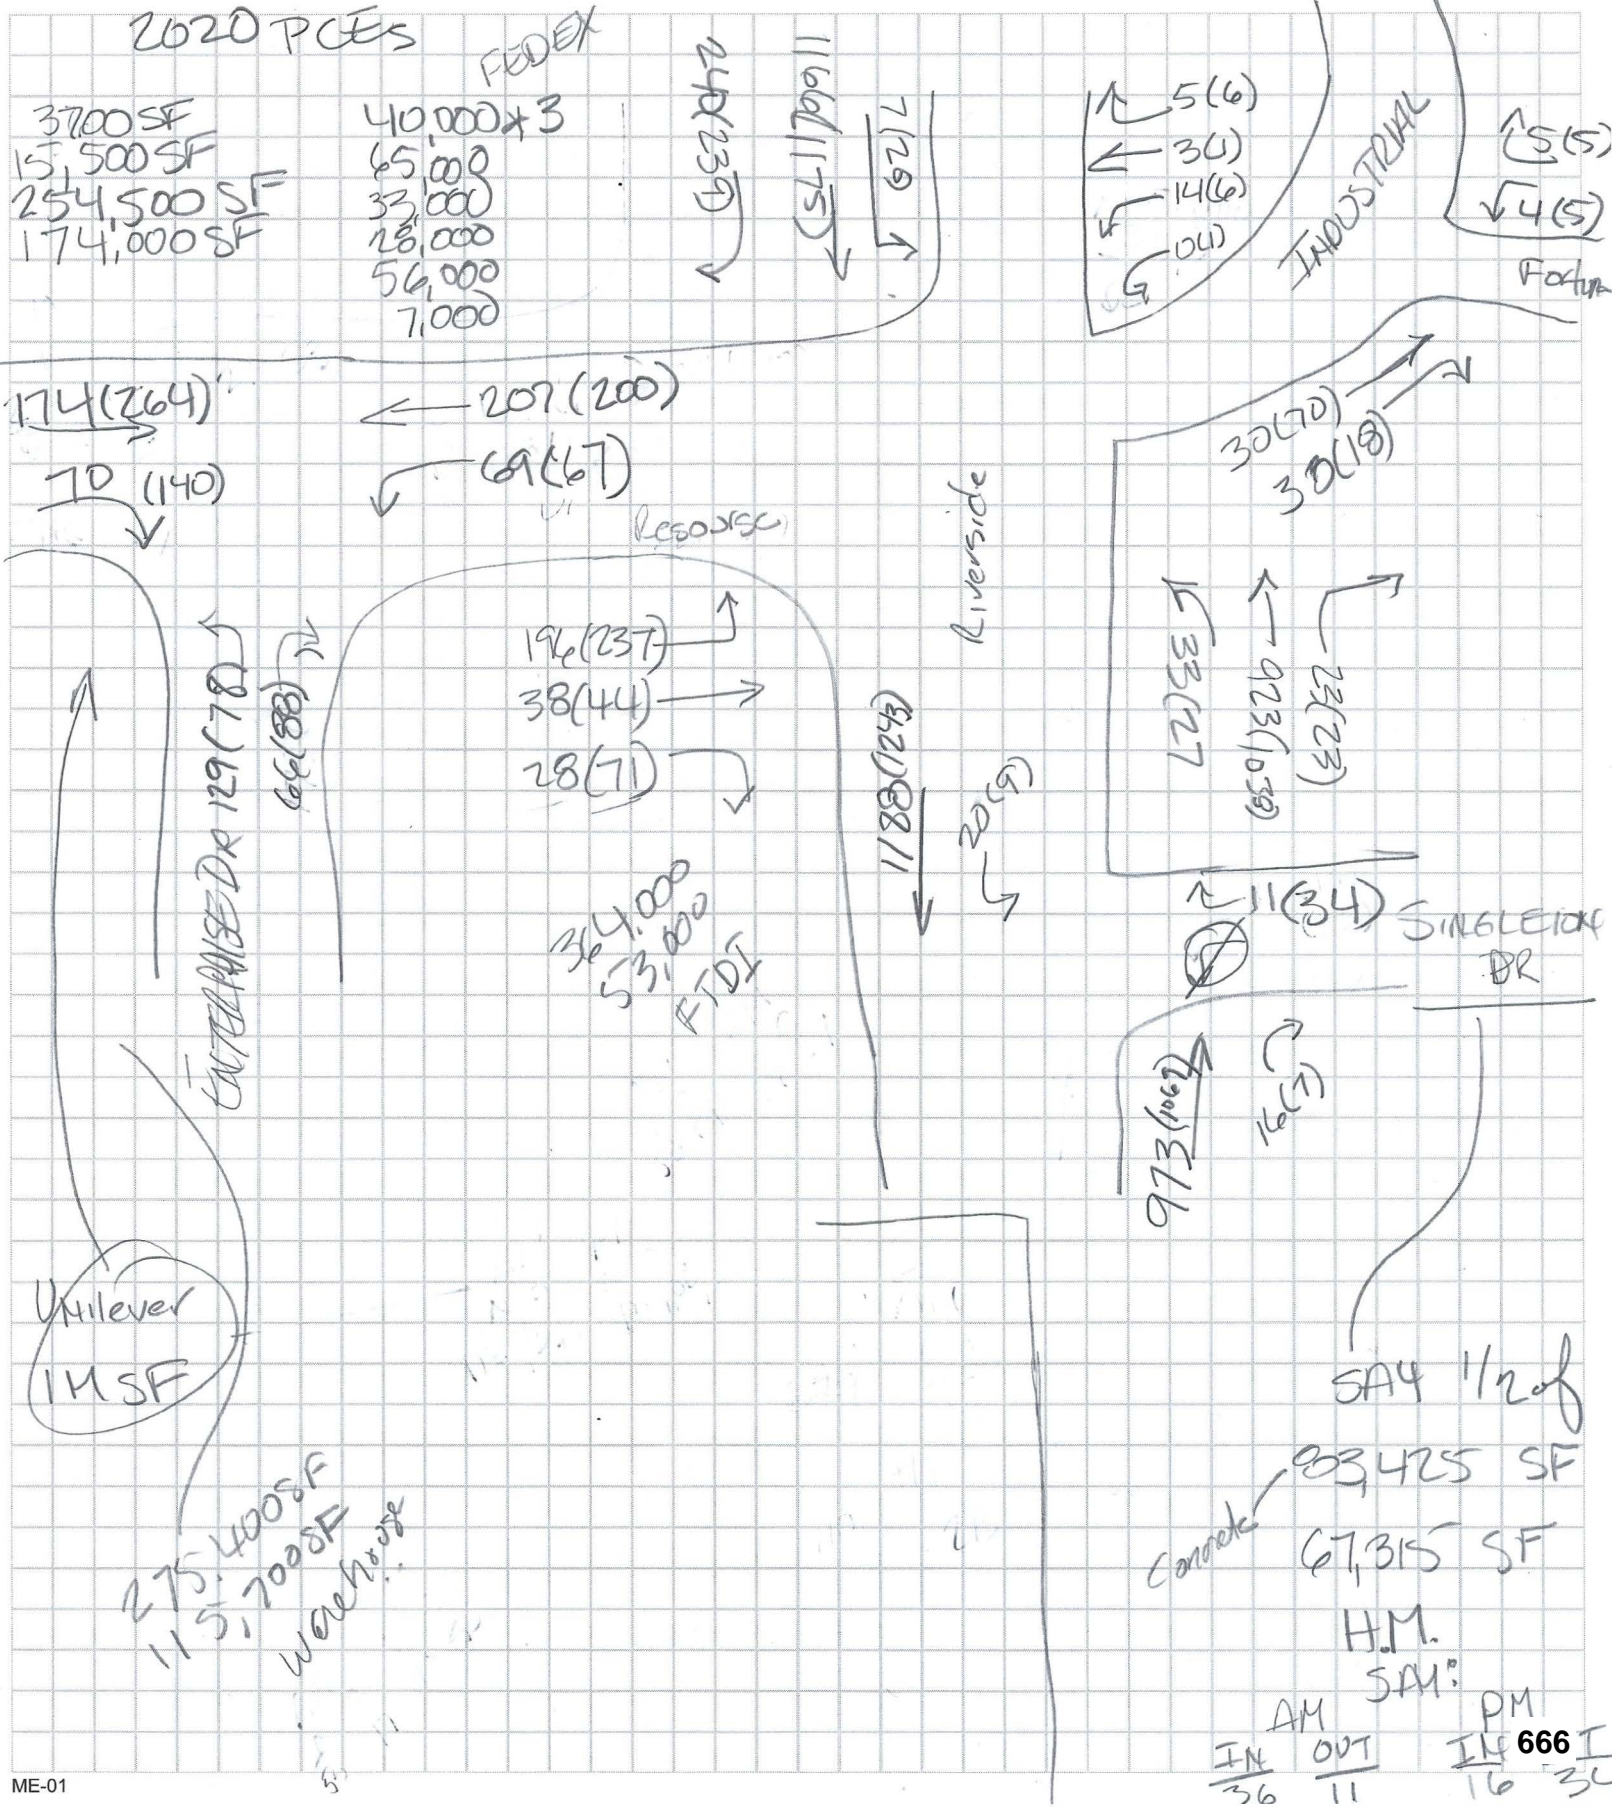 2020 PCEs
FEDEX
3700 SF
15,500 SF
254,500 SF
174,000 SF
40,000 x 3
65,000
33,000
28,000
56,000
7,000
240(239)
1166(1175)
7(26)
5(6)
3(1)
14(6)
0(1)
INDUSTRIAL
5(5)
4(5)
174(264)
70 (140)
207(200)
69(67)
Resourse
Riverside
30(70)
30(18)
ENTERPRISE DR 129(78)
66(88)
196(237)
38(44)
28(71)
364,000
53,000
FTDI
1188(1243)
20(9)
33(27
923(1038)
23(23)
11(34)
SINGLETON
DR
973(1062)
16(7)
Unilever
1M SF
275,400 SF
115,700 SF
warehouse
SAY 1/2 of
83,425 SF
Concrete
67,315 SF
H.M.
SAY:
AM
PM
IN OUT
36 11
16
666
ME-01